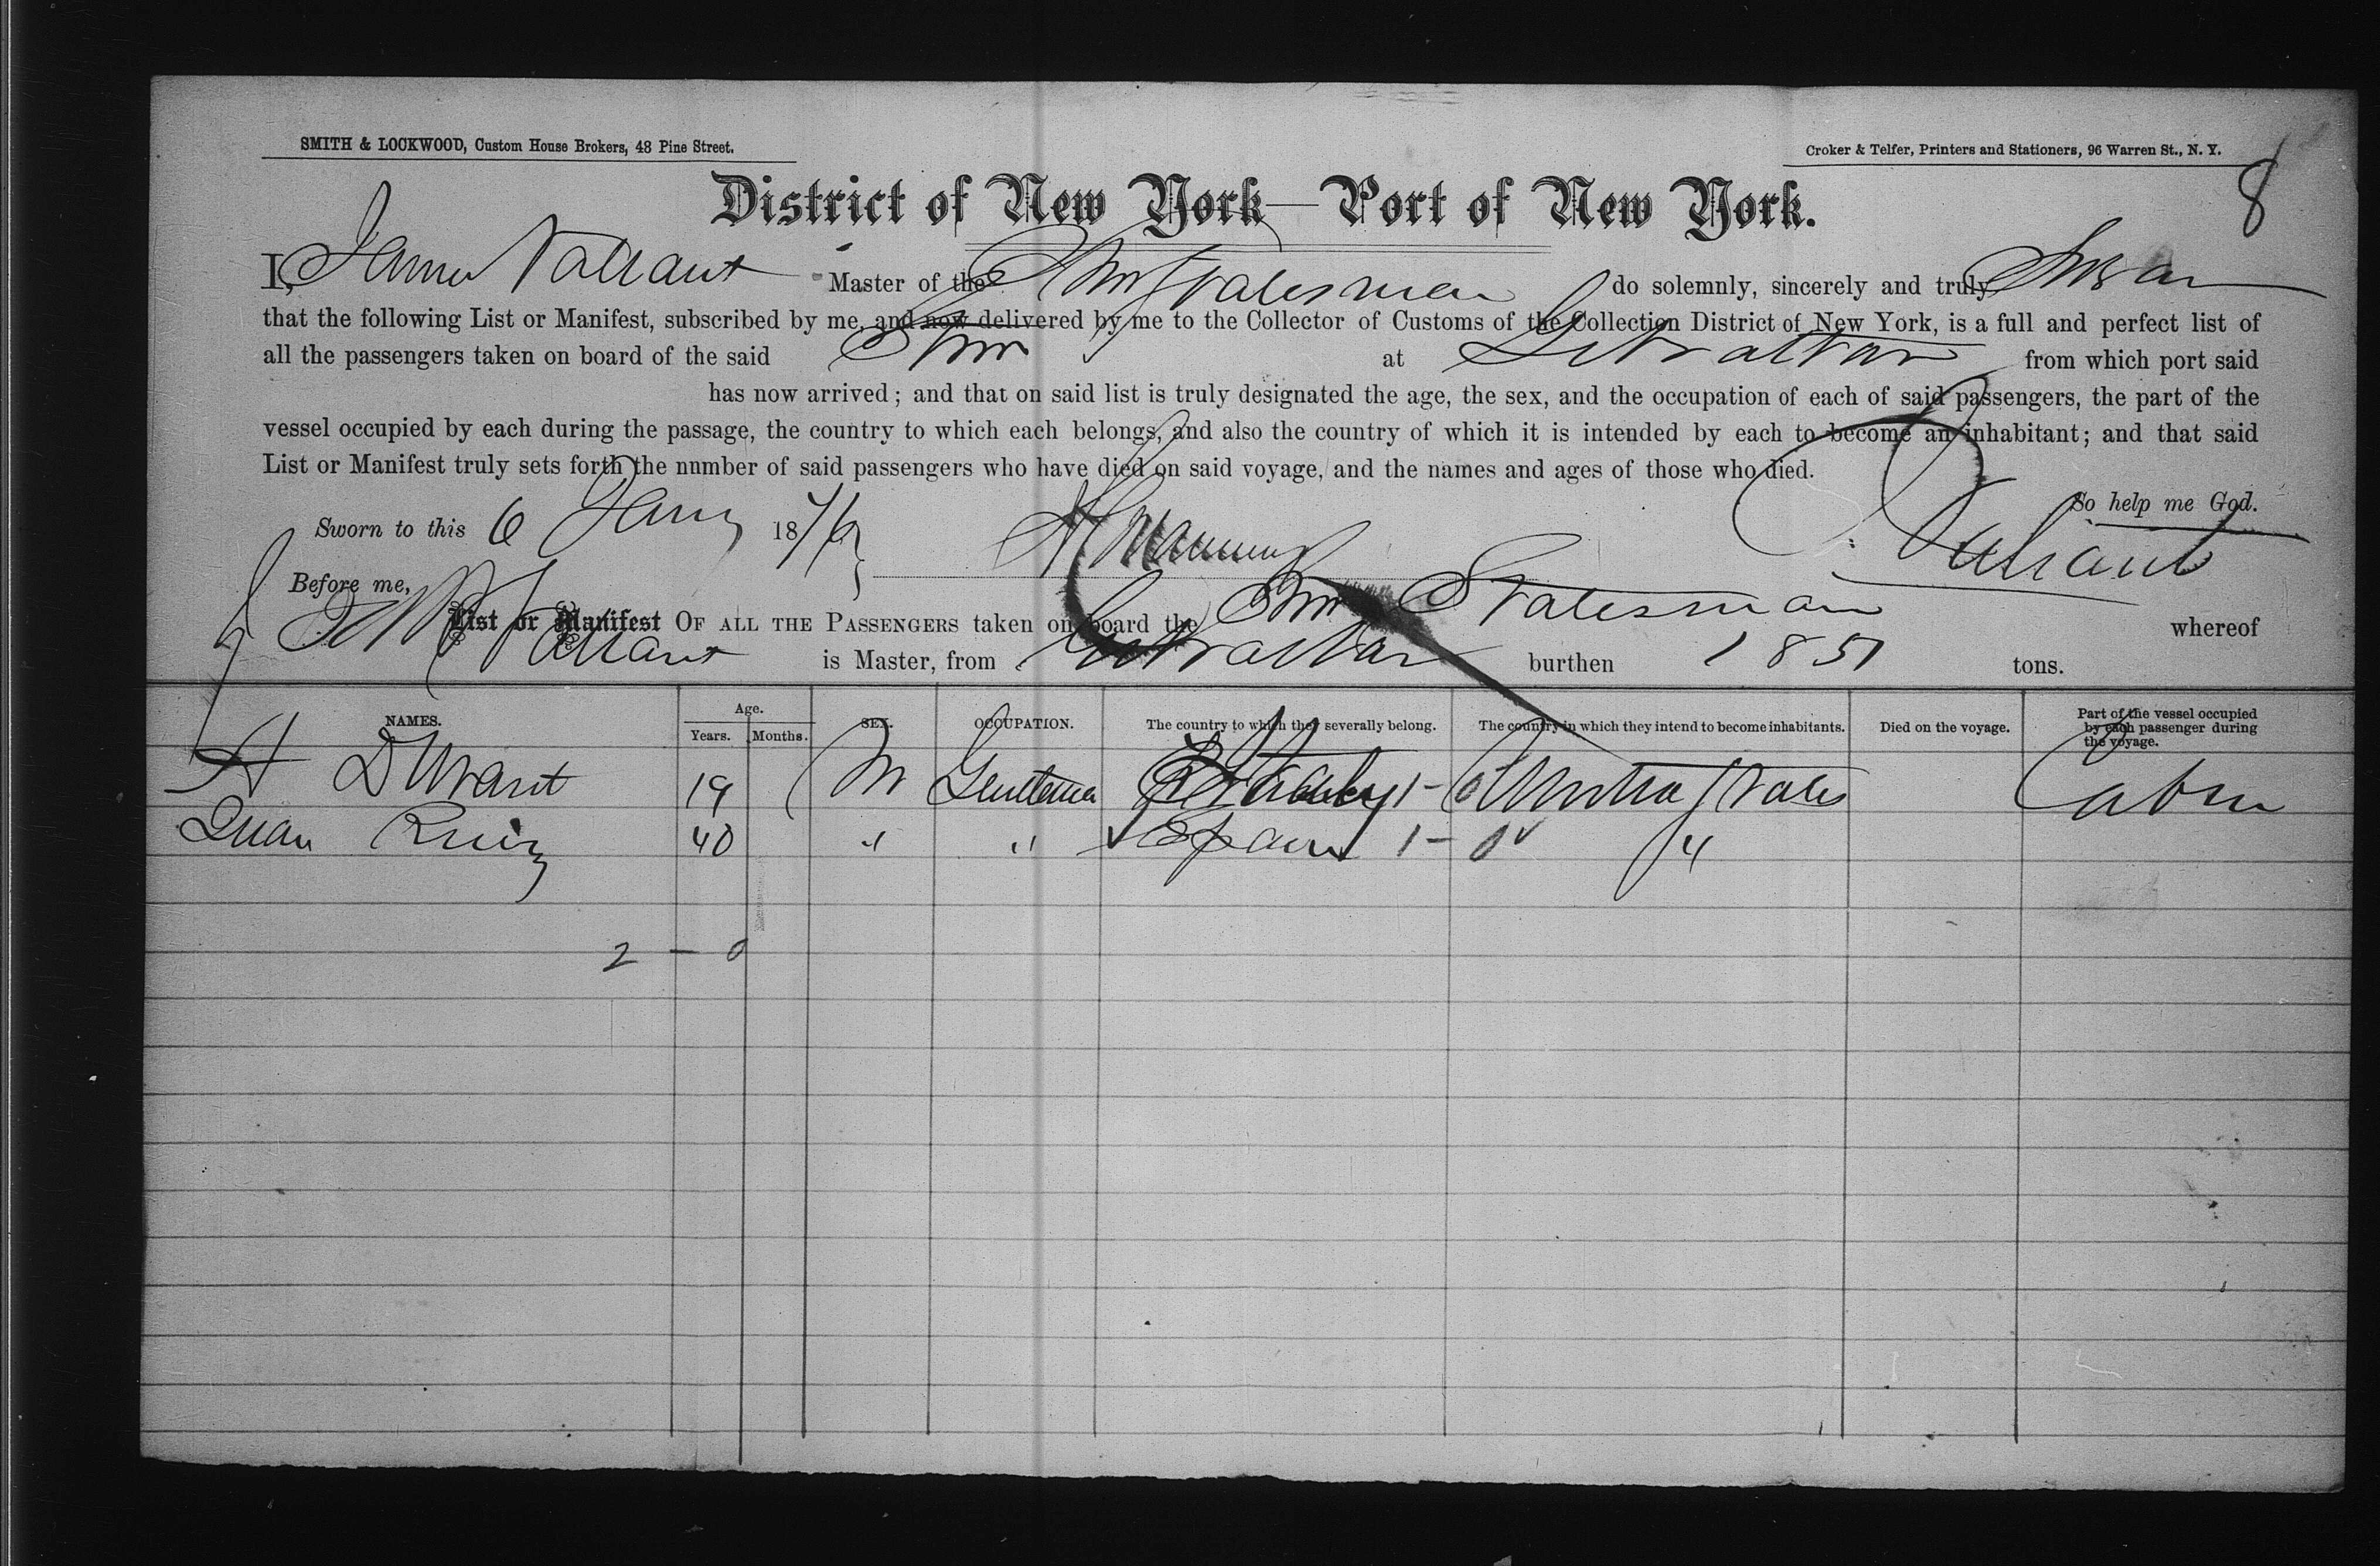 SMITH & LOCKWOOD, Custom House Brokers, 48 Pine Street.
Croker & Telfer, Printers and Stationers, 96 Warren St., N. Y.
8
District of New York—Port of New York.
I, James Valiant Master of the Stmr Statesman do solemnly, sincerely and truly Swear
that the following List or Manifest, subscribed by me, and now delivered by me to the Collector of Customs of the Collection District of New York, is a full and perfect list of
all the passengers taken on board of the said Stmr at Gibraltar from which port said
has now arrived; and that on said list is truly designated the age, the sex, and the occupation of each of said passengers, the part of the
vessel occupied by each during the passage, the country to which each belongs, and also the country of which it is intended by each to become an inhabitant; and that said
List or Manifest truly sets forth the number of said passengers who have died on said voyage, and the names and ages of those who died.
So help me God.
Sworn to this 6 Jany 1876 Valiant
Before me,
List or Manifest OF ALL THE PASSENGERS taken on board the Stmr Statesman whereof
Valiant is Master, from Gibraltar burthen 1851 tons.
NAMES. Age. Years. Months. SEX. OCCUPATION. The country to which they severally belong. The country in which they intend to become inhabitants. Died on the voyage. Part of the vessel occupied by each passenger during the voyage.
A 19 M Gentleman 1 - 0 United States Cabin
Juan Ruiz 40 " " Spain 1 - 0 "
2 - 0